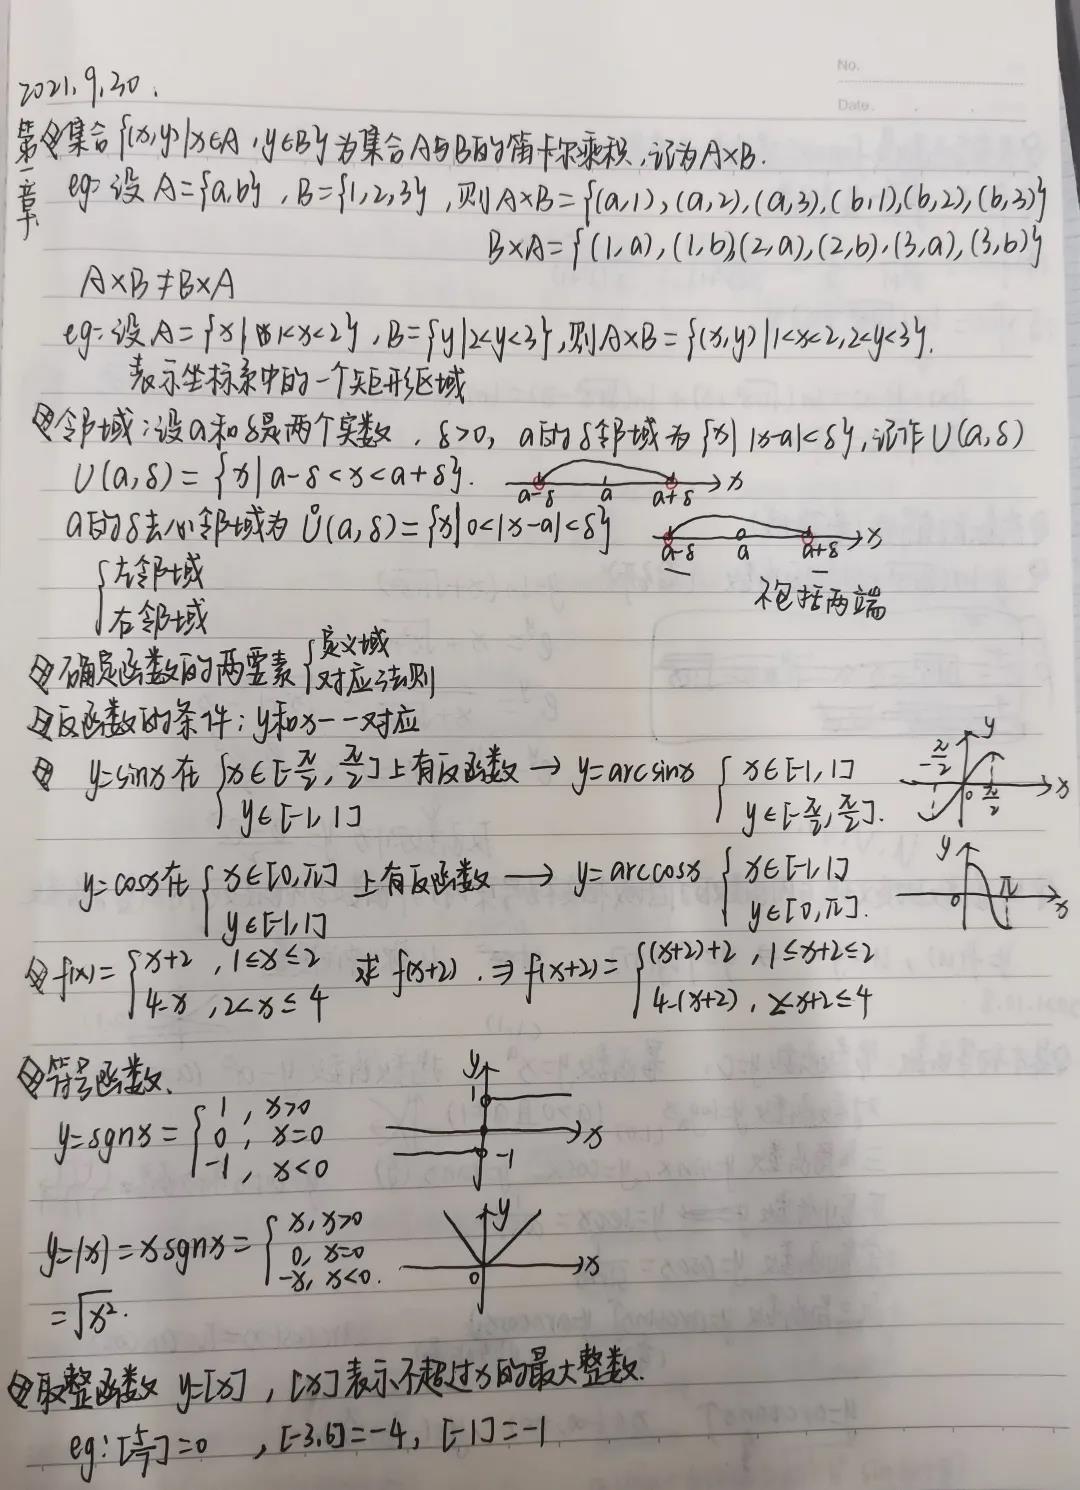 No.
Date.
2021.9.30.
第一章
集合{(x,y)|x∈A,y∈B}为集合A与B的笛卡尔乘积,记为A×B.
eg:设A={a,b},B={1,2,3},则A×B={(a,1),(a,2),(a,3),(b,1),(b,2),(b,3)}
B×A={(1,a),(1,b),(2,a),(2,b),(3,a),(3,b)}
A×B≠B×A
eg:设A={x|1<x<2},B={y|2<y<3},则A×B={(x,y)|1<x<2,2<y<3}.
表示坐标系中的一个矩形区域
邻域:设a和δ是两个实数,δ>0,a的δ邻域为{x||x-a|<δ},记作U(a,δ)
U(a,δ)={x|a-δ<x<a+δ}.
a-δ a a+δ x
a的δ去心邻域为Ů(a,δ)={x|0<|x-a|<δ}
a-δ a a+δ x
不包括两端
{左邻域
右邻域
确定函数的两要素{定义域
对应法则
反函数的条件:y和x一一对应
y=sinx在{x∈[-π/2,π/2] y∈[-1,1] 上有反函数→y=arcsinx{x∈[-1,1] y∈[-π/2,π/2].
y -π/2 0 π/2 x
y=cosx在{x∈[0,π] y∈[-1,1] 上有反函数→y=arccosx{x∈[-1,1] y∈[0,π].
y 0 π x
f(x)={x+2,1≤x≤2 4-x,2<x≤4 求f(x+2).⇒f(x+2)={(x+2)+2,1≤x+2≤2 4-(x+2),2<x+2≤4
符号函数.
y=sgnx={1,x>0 0,x=0 -1,x<0
y 1 x -1
y=|x|=xsgnx={x,x>0 0,x=0 -x,x<0.
y 0 x
=√x².
取整函数 y=[x],[x]表示不超过x的最大整数.
eg:[5/7]=0,[-3.6]=-4,[-1]=-1